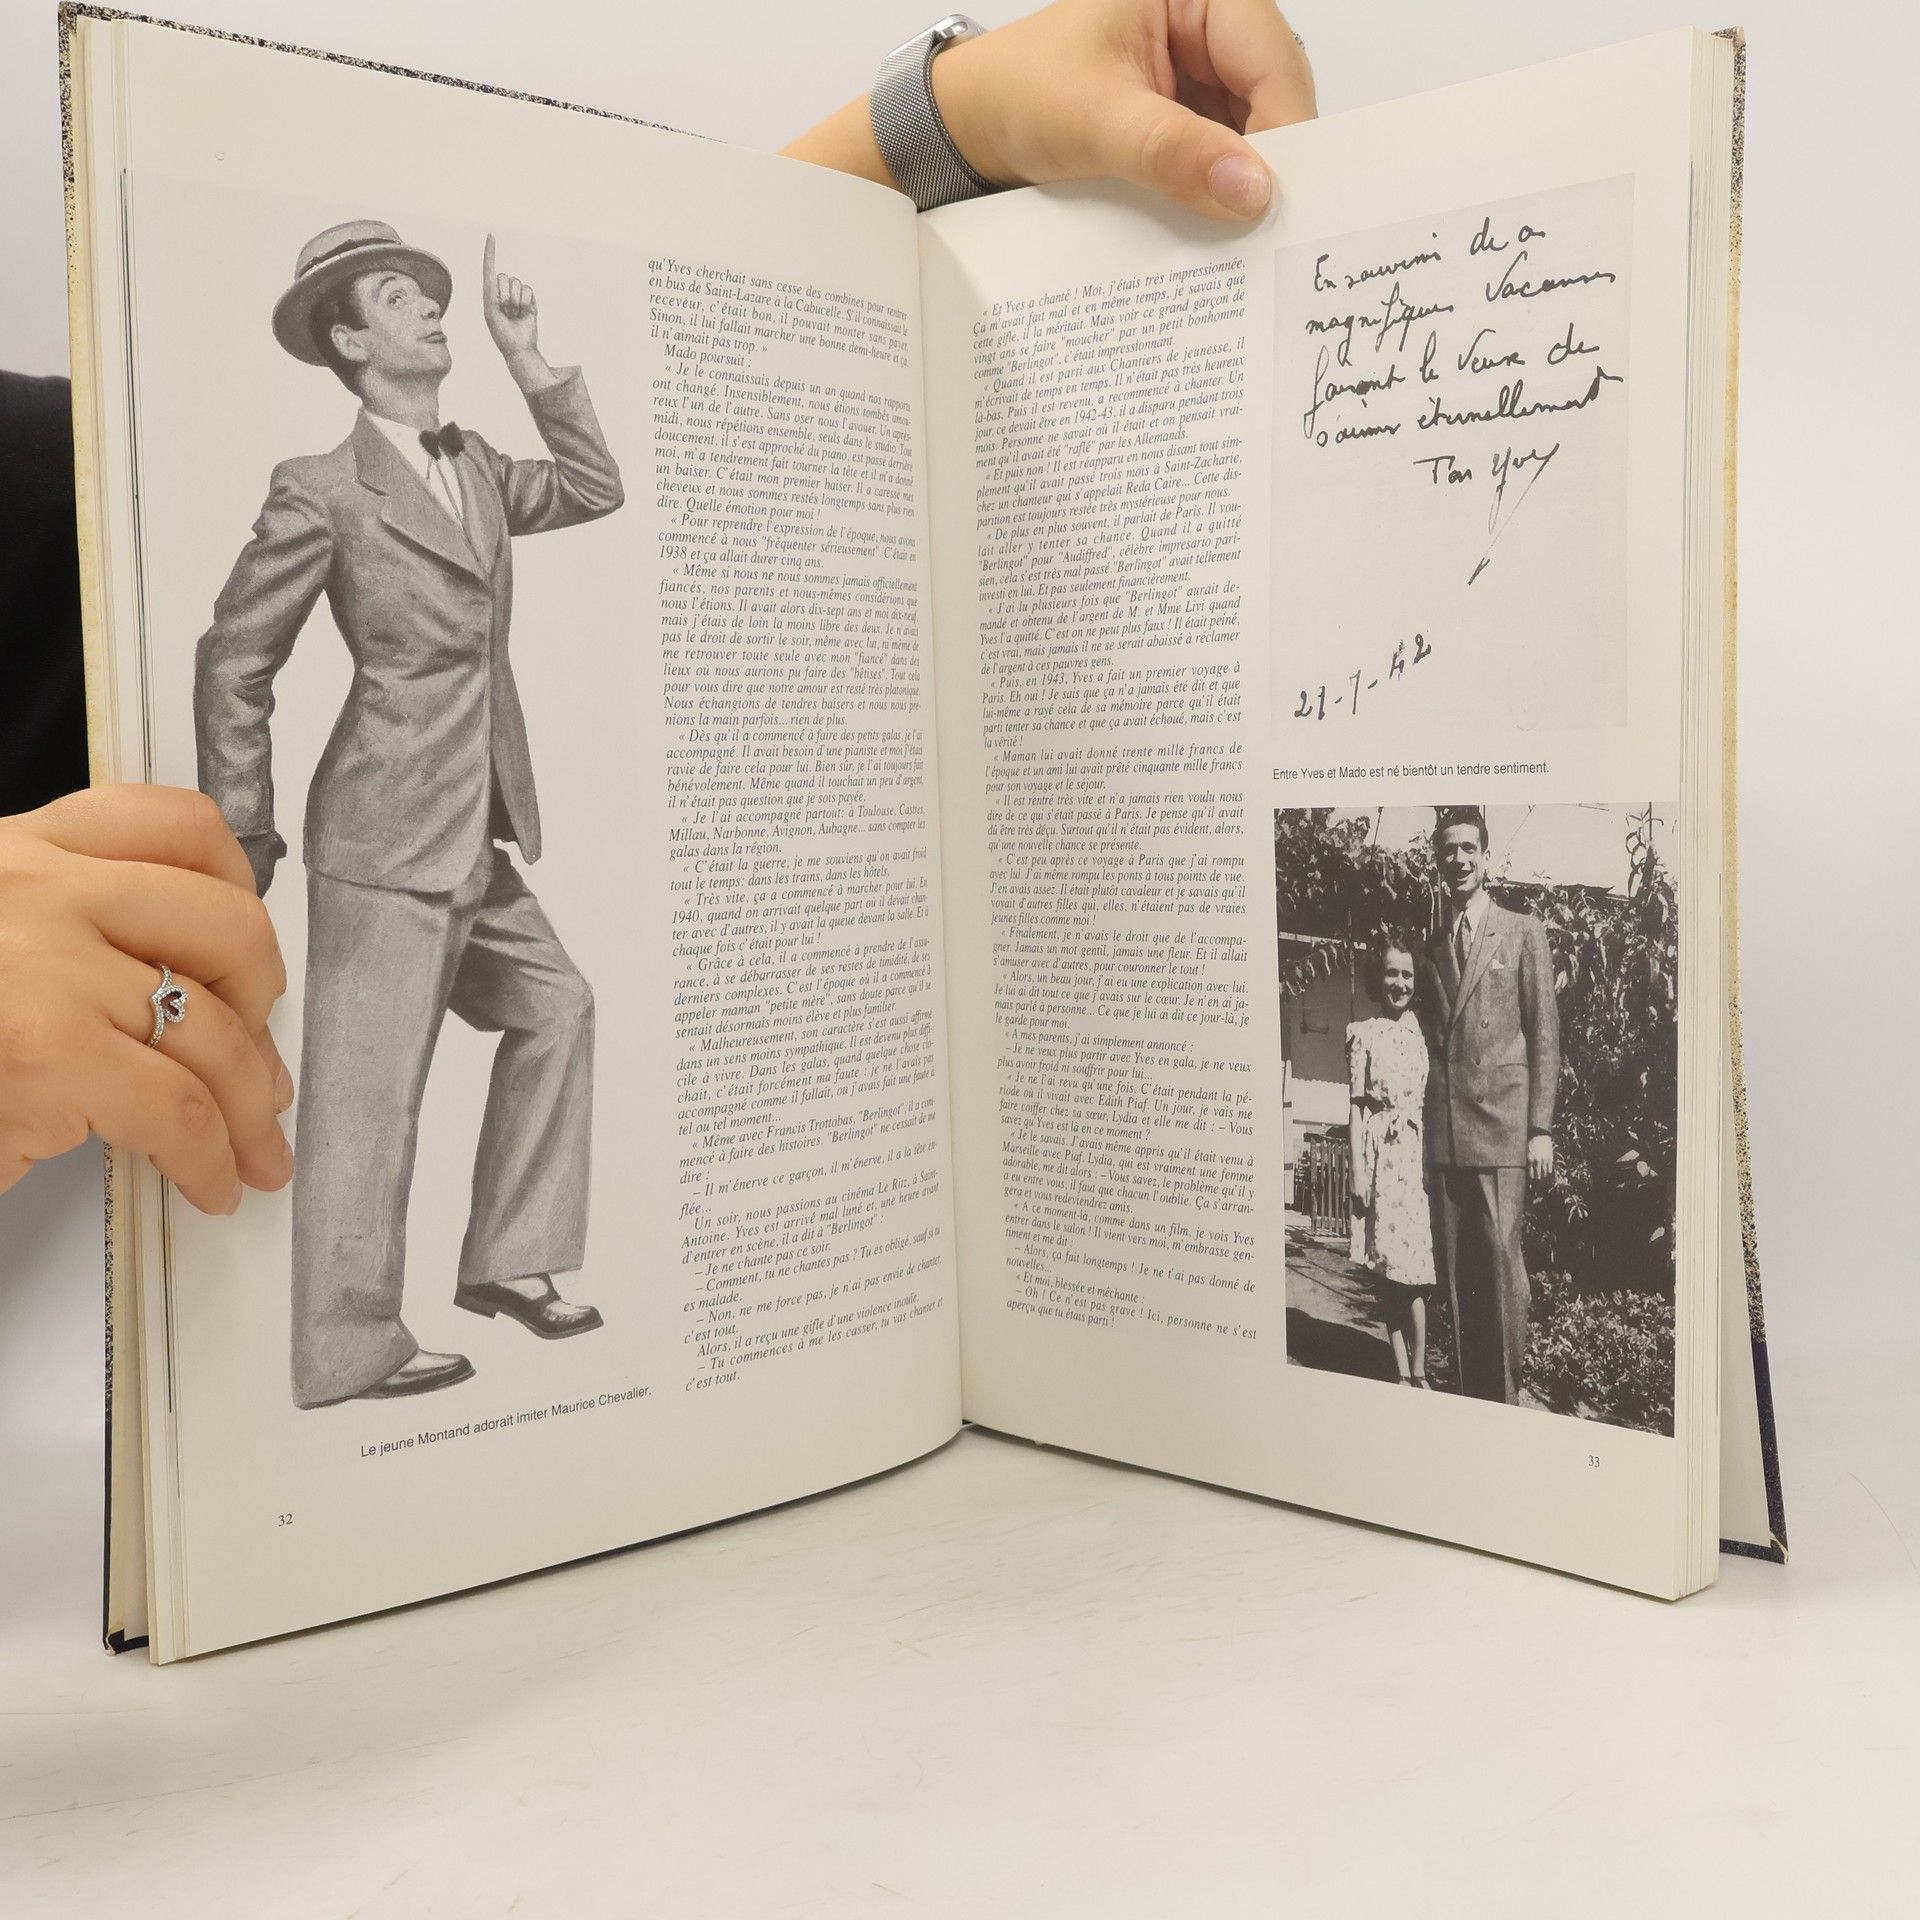 qu'Yves cherchait sans cesse des combines pour rentrer
en bus de Saint-Lazare à la Cabucelle. S'il connaissait le
receveur, c'était bon, il pouvait monter sans payer.
Sinon, il lui fallait marcher une bonne demi-heure et ça,
il n'aimait pas trop. »
Mado poursuit :
« Je le connaissais depuis un an quand nos rapports
ont changé. Insensiblement, nous étions tombés amou-
reux l'un de l'autre. Sans oser nous l'avouer. Un après-
midi, nous répétions ensemble, seuls dans le studio. Tout
doucement, il s'est approché du piano, est passé derrière
moi, m'a tendrement fait tourner la tête et il m'a donné
un baiser. C'était mon premier baiser. Il a caressé mes
cheveux et nous sommes restés longtemps sans plus rien
dire. Quelle émotion pour moi !
« Pour reprendre l'expression de l'époque, nous avons
commencé à nous "fréquenter sérieusement". C'était en
1938 et ça allait durer cinq ans.
« Même si nous ne nous sommes jamais officiellement
fiancés, nos parents et nous-mêmes considérions que
nous l'étions. Il avait alors dix-sept ans et moi dix-neuf,
mais j'étais de loin la moins libre des deux. Je n'avais
pas le droit de sortir le soir, même avec lui, ni même de
me retrouver toute seule avec mon "fiancé" dans des
lieux où nous aurions pu faire des "bêtises". Tout cela
pour vous dire que notre amour est resté très platonique.
Nous échangions de tendres baisers et nous nous pre-
nions la main parfois... rien de plus.
« Dès qu'il a commencé à faire des petits galas, je l'ai
accompagné. Il avait besoin d'une pianiste et moi j'étais
ravie de faire cela pour lui. Bien sûr, je l'ai toujours fait
bénévolement. Même quand il touchait un peu d'argent,
il n'était pas question que je sois payée.
« Je l'ai accompagné partout: à Toulouse, Castres,
Millau, Narbonne, Avignon, Aubagne... sans compter les
galas dans la région.
« C'était la guerre, je me souviens qu'on avait froid
tout le temps: dans les trains, dans les hôtels.
« Très vite, ça a commencé à marcher pour lui. En
1940, quand on arrivait quelque part où il devait chan-
ter avec d'autres, il y avait la queue devant la salle. Et à
chaque fois c'était pour lui !
« Grâce à cela, il a commencé à prendre de l'assu-
rance, à se débarrasser de ses restes de timidité, de ses
derniers complexes. C'est l'époque où il a commencé à
appeler maman "petite mère", sans doute parce qu'il se
sentait désormais moins élève et plus familier.
« Malheureusement, son caractère s'est aussi affirmé
dans un sens moins sympathique. Il est devenu plus diffi-
cile à vivre. Dans les galas, quand quelque chose clo-
chait, c'était forcément ma faute : je ne l'avais pas
accompagné comme il fallait, ou j'avais fait une faute à
tel ou tel moment...
« Même avec Francis Trottobas, "Berlingot", il a com-
mencé à faire des histoires. "Berlingot" ne cessait de me
dire :
– Il m'énerve ce garçon, il m'énerve, il a la tête en-
flée...
Un soir, nous passions au cinéma Le Ritz, à Saint-
Antoine. Yves est arrivé mal luné et, une heure avant
d'entrer en scène, il a dit à "Berlingot" :
– Je ne chante pas ce soir.
– Comment, tu ne chantes pas ? Tu es obligé, sauf si tu
es malade.
– Non, ne me force pas, je n'ai pas envie de chanter,
c'est tout.
Alors, il a reçu une gifle d'une violence inouïe.
– Tu commences à me les casser, tu vas chanter et
c'est tout.
Le jeune Montand adorait imiter Maurice Chevalier.
32
« Et Yves a chanté ! Moi, j'étais très impressionnée.
Ça m'avait fait mal et en même temps, je savais que
cette gifle, il la méritait. Mais voir ce grand garçon de
vingt ans se faire "moucher" par un petit bonhomme
comme "Berlingot", c'était impressionnant.
« Quand il est parti aux Chantiers de jeunesse, il
m'écrivait de temps en temps. Il n'était pas très heureux
là-bas. Puis il est revenu, a recommencé à chanter. Un
jour, ce devait être en 1942-43, il a disparu pendant trois
mois. Personne ne savait où il était et on pensait vrai-
ment qu'il avait été "raflé" par les Allemands.
« Et puis non ! Il est réapparu en nous disant tout sim-
plement qu'il avait passé trois mois à Saint-Zacharie,
chez un chanteur qui s'appelait Reda Caire... Cette dis-
parition est toujours restée très mystérieuse pour nous.
« De plus en plus souvent, il parlait de Paris. Il vou-
lait aller y tenter sa chance. Quand il a quitté
"Berlingot" pour "Audiffred", célèbre impresario pari-
sien, cela s'est très mal passé. "Berlingot" avait tellement
investi en lui. Et pas seulement financièrement.
« J'ai lu plusieurs fois que "Berlingot" aurait de-
mandé et obtenu de l'argent de M. et Mme Livi quand
Yves l'a quitté. C'est on ne peut plus faux ! Il était peiné,
c'est vrai, mais jamais il ne se serait abaissé à réclamer
de l'argent à ces pauvres gens.
« Puis, en 1943, Yves a fait un premier voyage à
Paris. Eh oui ! Je sais que ça n'a jamais été dit et que
lui-même a rayé cela de sa mémoire parce qu'il était
parti tenter sa chance et que ça avait échoué, mais c'est
la vérité !
« Maman lui avait donné trente mille francs de
l'époque et un ami lui avait prêté cinquante mille francs
pour son voyage et le séjour.
« Il est rentré très vite et n'a jamais rien voulu nous
dire de ce qui s'était passé à Paris. Je pense qu'il avait
dû être très déçu. Surtout qu'il n'était pas évident, alors,
qu'une nouvelle chance se présente.
« C'est peu après ce voyage à Paris que j'ai rompu
avec lui. J'ai même rompu les ponts à tous points de vue.
J'en avais assez. Il était plutôt cavaleur et je savais qu'il
voyait d'autres filles qui, elles, n'étaient pas de vraies
jeunes filles comme moi !
« Finalement, je n'avais le droit que de l'accompa-
gner. Jamais un mot gentil, jamais une fleur. Et il allait
s'amuser avec d'autres, pour couronner le tout !
« Alors, un beau jour, j'ai eu une explication avec lui.
Je lui ai dit tout ce que j'avais sur le cœur. Je n'en ai ja-
mais parlé à personne... Ce que je lui ai dit ce jour-là, je
le garde pour moi.
« A mes parents, j'ai simplement annoncé :
– Je ne veux plus partir avec Yves en gala, je ne veux
plus avoir froid ni souffrir pour lui...
« Je ne l'ai revu qu'une fois. C'était pendant la pé-
riode où il vivait avec Edith Piaf. Un jour, je vais me
faire coiffer chez sa sœur, Lydia et elle me dit : – Vous
savez qu'Yves est là en ce moment ?
« Je le savais. J'avais même appris qu'il était venu à
Marseille avec Piaf. Lydia, qui est vraiment une femme
adorable, me dit alors : – Vous savez, le problème qu'il y
a eu entre vous, il faut que chacun l'oublie. Ça s'arran-
gera et vous redeviendrez amis.
« A ce moment-là, comme dans un film, je vois Yves
entrer dans le salon ! Il vient vers moi, m'embrasse gen-
timent et me dit :
– Alors, ça fait longtemps ! Je ne t'ai pas donné de
nouvelles...
« Et moi, blessée et méchante :
– Oh ! Ce n'est pas grave ! Ici, personne ne s'est
aperçu que tu étais parti !
En souvenir de ces
magnifiques vacances
faisant le vœux de
s'aimer éternellement
Ton Yves
27-7-42
Entre Yves et Mado est né bientôt un tendre sentiment.
33